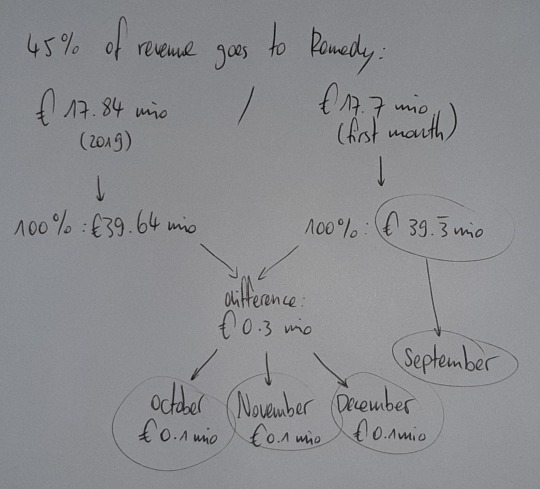 45% of revenue goes to Remedy:
€ 17.84 mio / € 17.7 mio
(2019) (first month)
100%: €39.64 mio 100%: € 39.3̅ mio
difference:
€ 0.3 mio
September
October November December
€ 0.1 mio €0.1 mio €0.1 mio